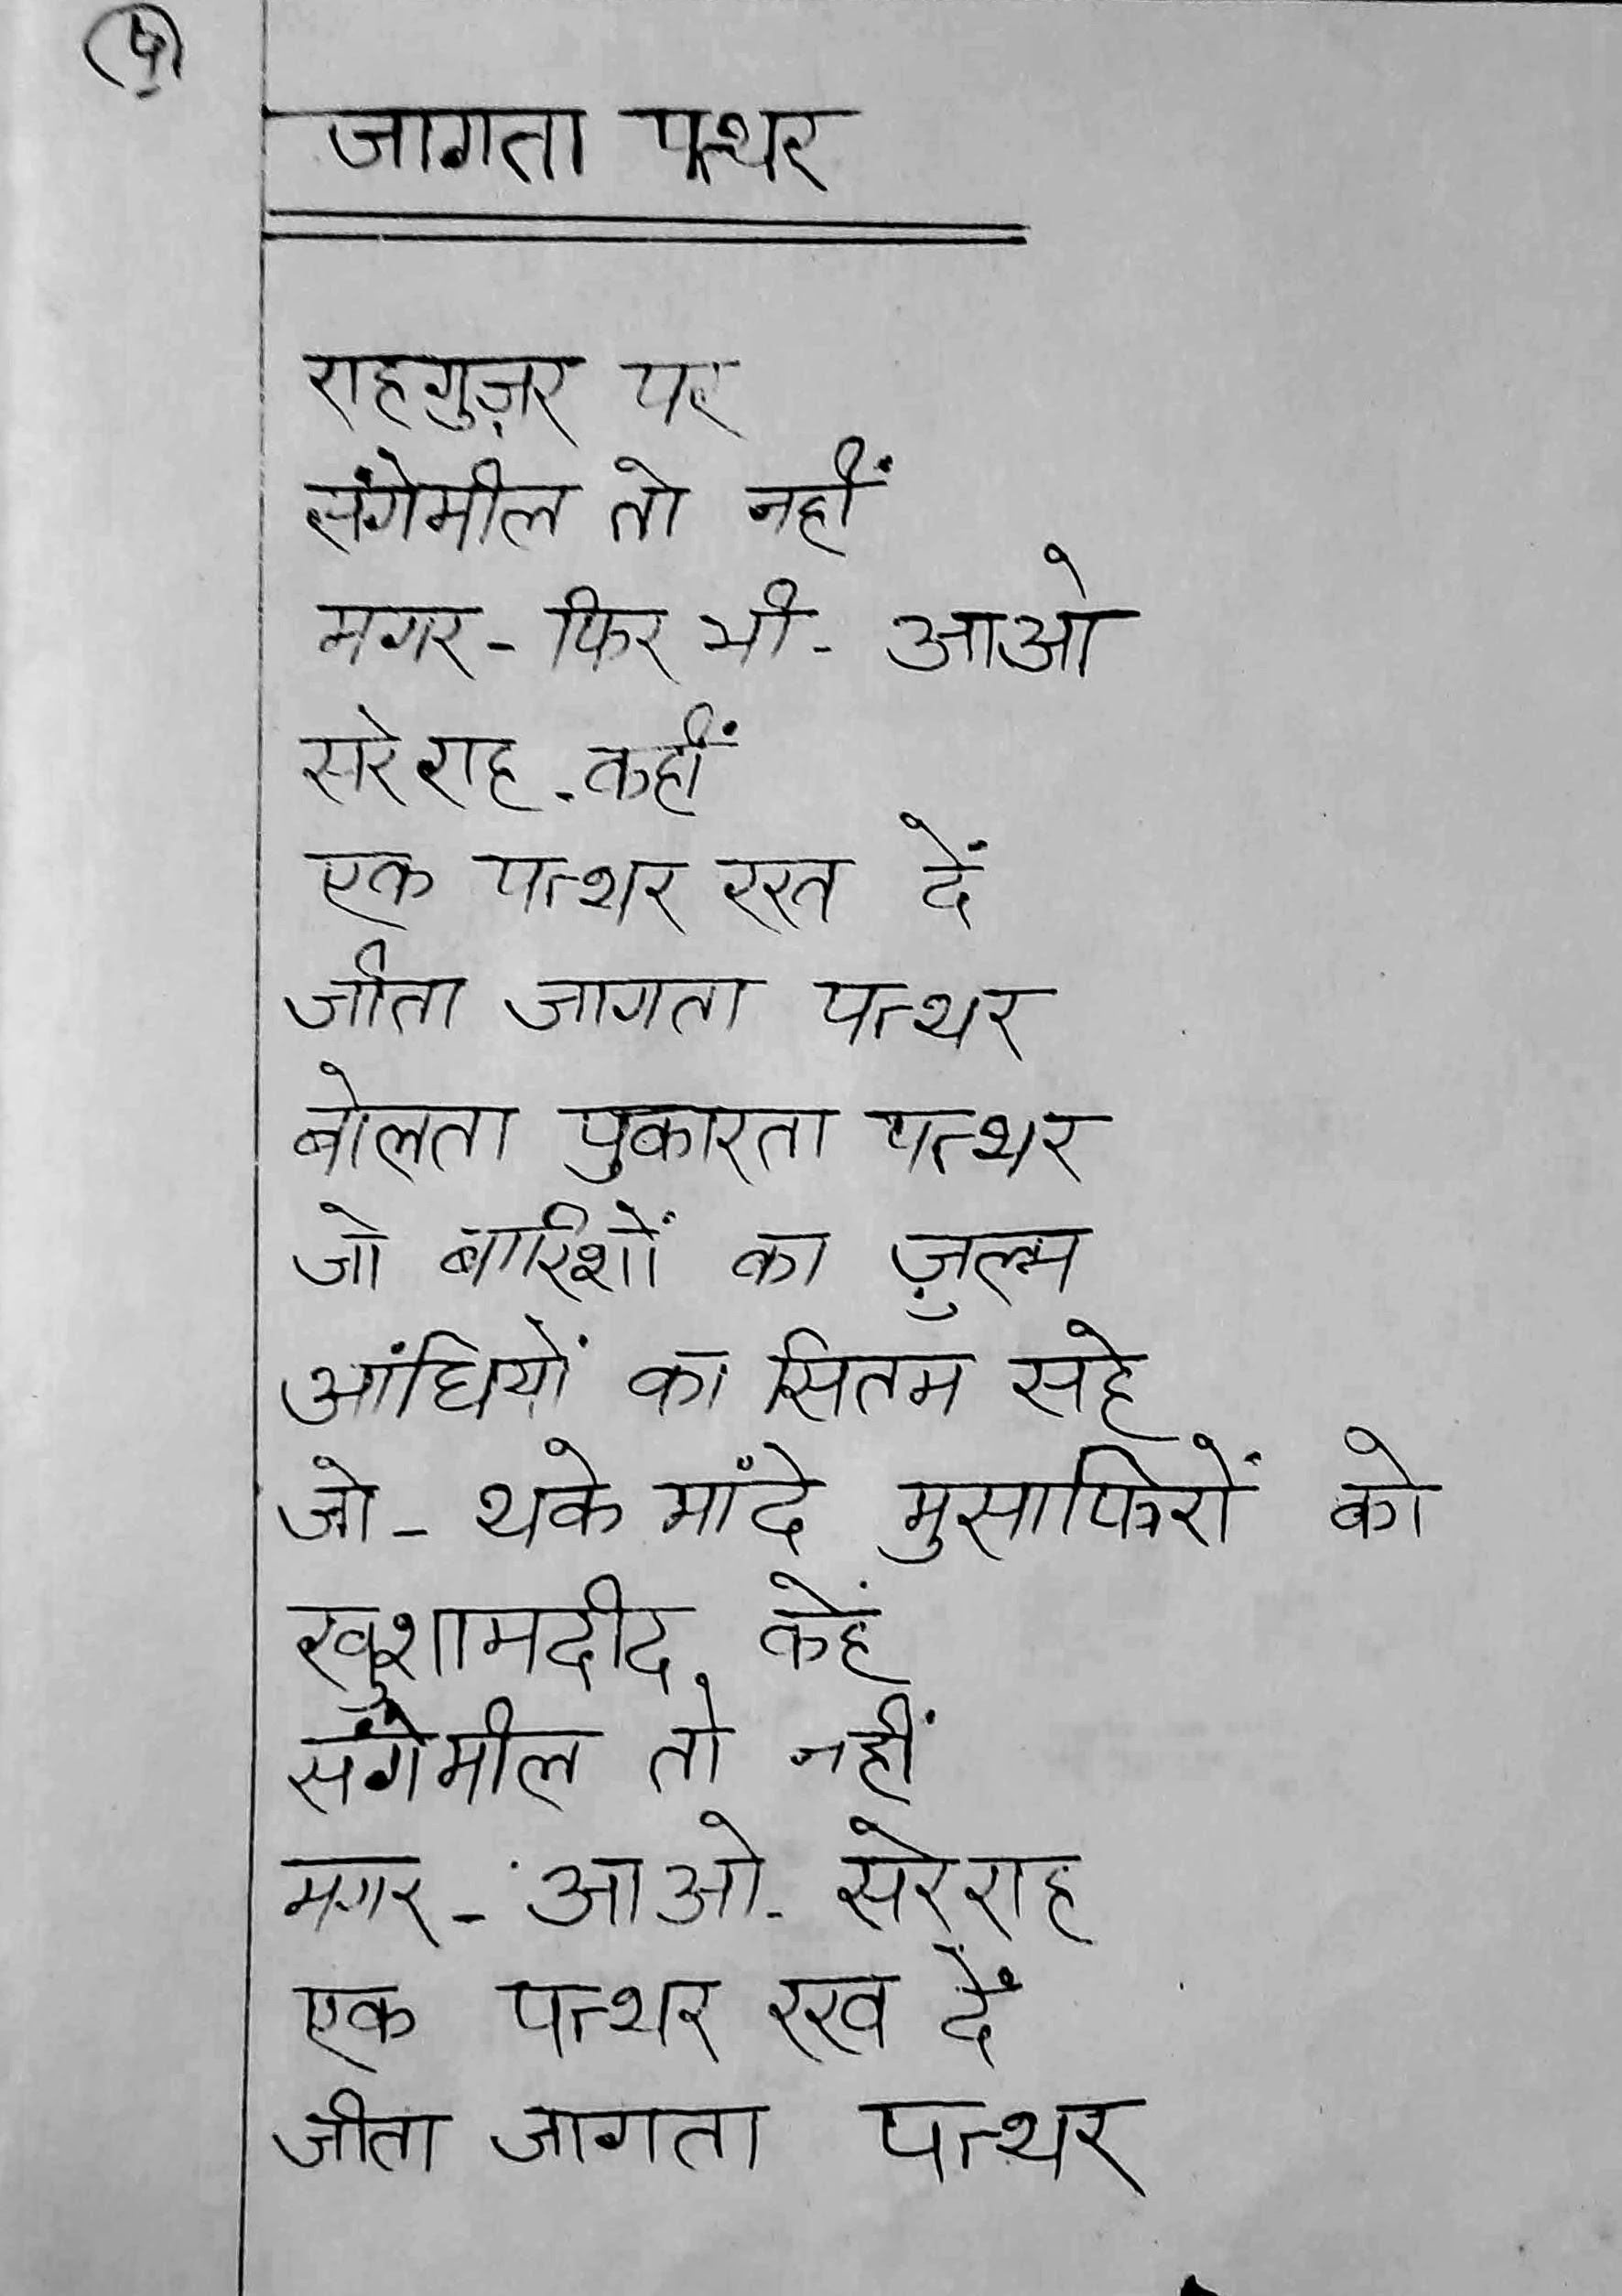 (५)
जागता पत्थर
राहगुज़र पर
संगेमील तो नहीं
मगर - फिर भी - आओ
सरे राह - कहीं
एक पत्थर रख दें
जीता जागता पत्थर
बोलता पुकारता पत्थर
जो बारिशों का ज़ुल्म
आंधियों का सितम सहे
जो - थके मांदे मुसाफिरों को
खुशामदीद कहें
संगेमील तो नहीं
मगर - आओ - सरे राह
एक पत्थर रख दें
जीता जागता पत्थर